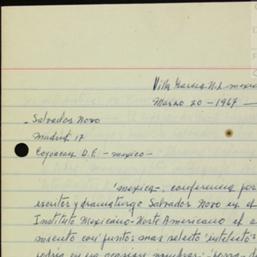 Villa Garcia N.L. mexico
Marzo 20 - 1967 -
- Salvador Novo
Madrid 17
Coyoacan D.F. - mexico -
"mexico-. conferencia por
escritor y dramaturgo Salvador Novo en el
Instituto Mexicano-Norte Americano el a
miento conjunto: mas selecto intelecto